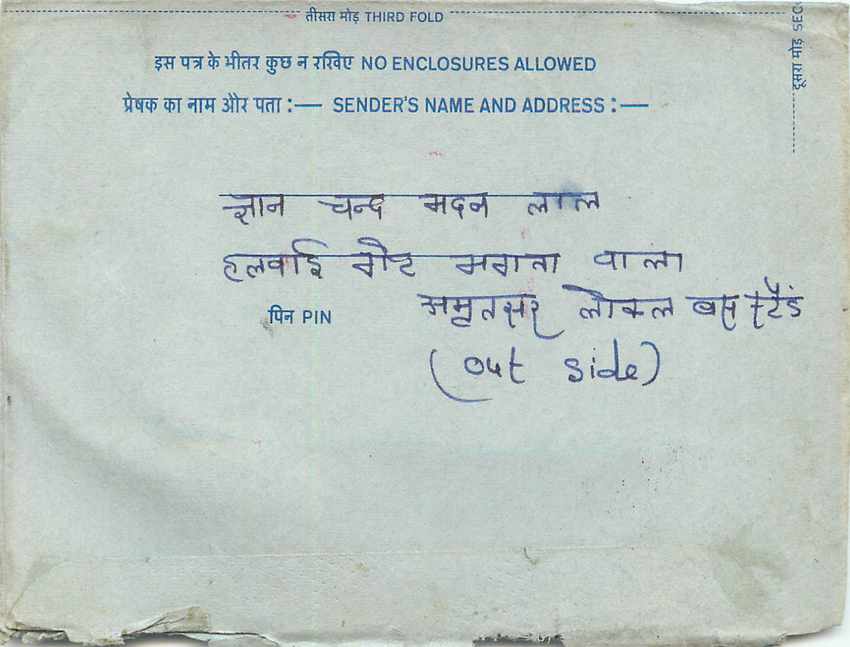 तीसरा मोड़ THIRD FOLD
इस पत्र के भीतर कुछ न रखिए NO ENCLOSURES ALLOWED
प्रेषक का नाम और पता :— SENDER'S NAME AND ADDRESS :—
ज्ञान चन्द मदन लाल
हलवाई गेट भगता वाला
पिन PIN अमृतसर लोकल बस स्टैंड
(out side)
दूसरा मोड़ SEC